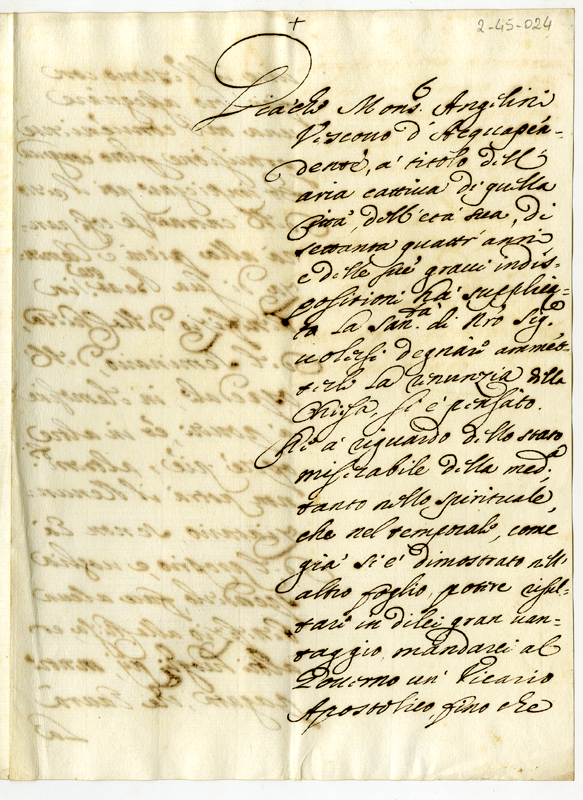 +
2-45-024
Giachè Mons.r Angelini
Vescovo d'Acquapen-
dente, a' titolo dell'
aria cattiva di quella
Città, dell'età sua, di
settanta quattr'anni
e delle sue gravi indis-
positioni hà supplica-
to la San.tà di Nro Sig.re
volersi degnare ammet-
terle la renunzia della
Chiesa, si è pensato.
Che a' riguardo dello stato
miserabile della med.a
tanto nello spirituale,
che nel temporale, come
già si è dimostrato nell'
altro foglio, potere risul-
tare in di lei gran van-
taggio, mandarci al
Governo un' Vicario
Apostolico, fino che